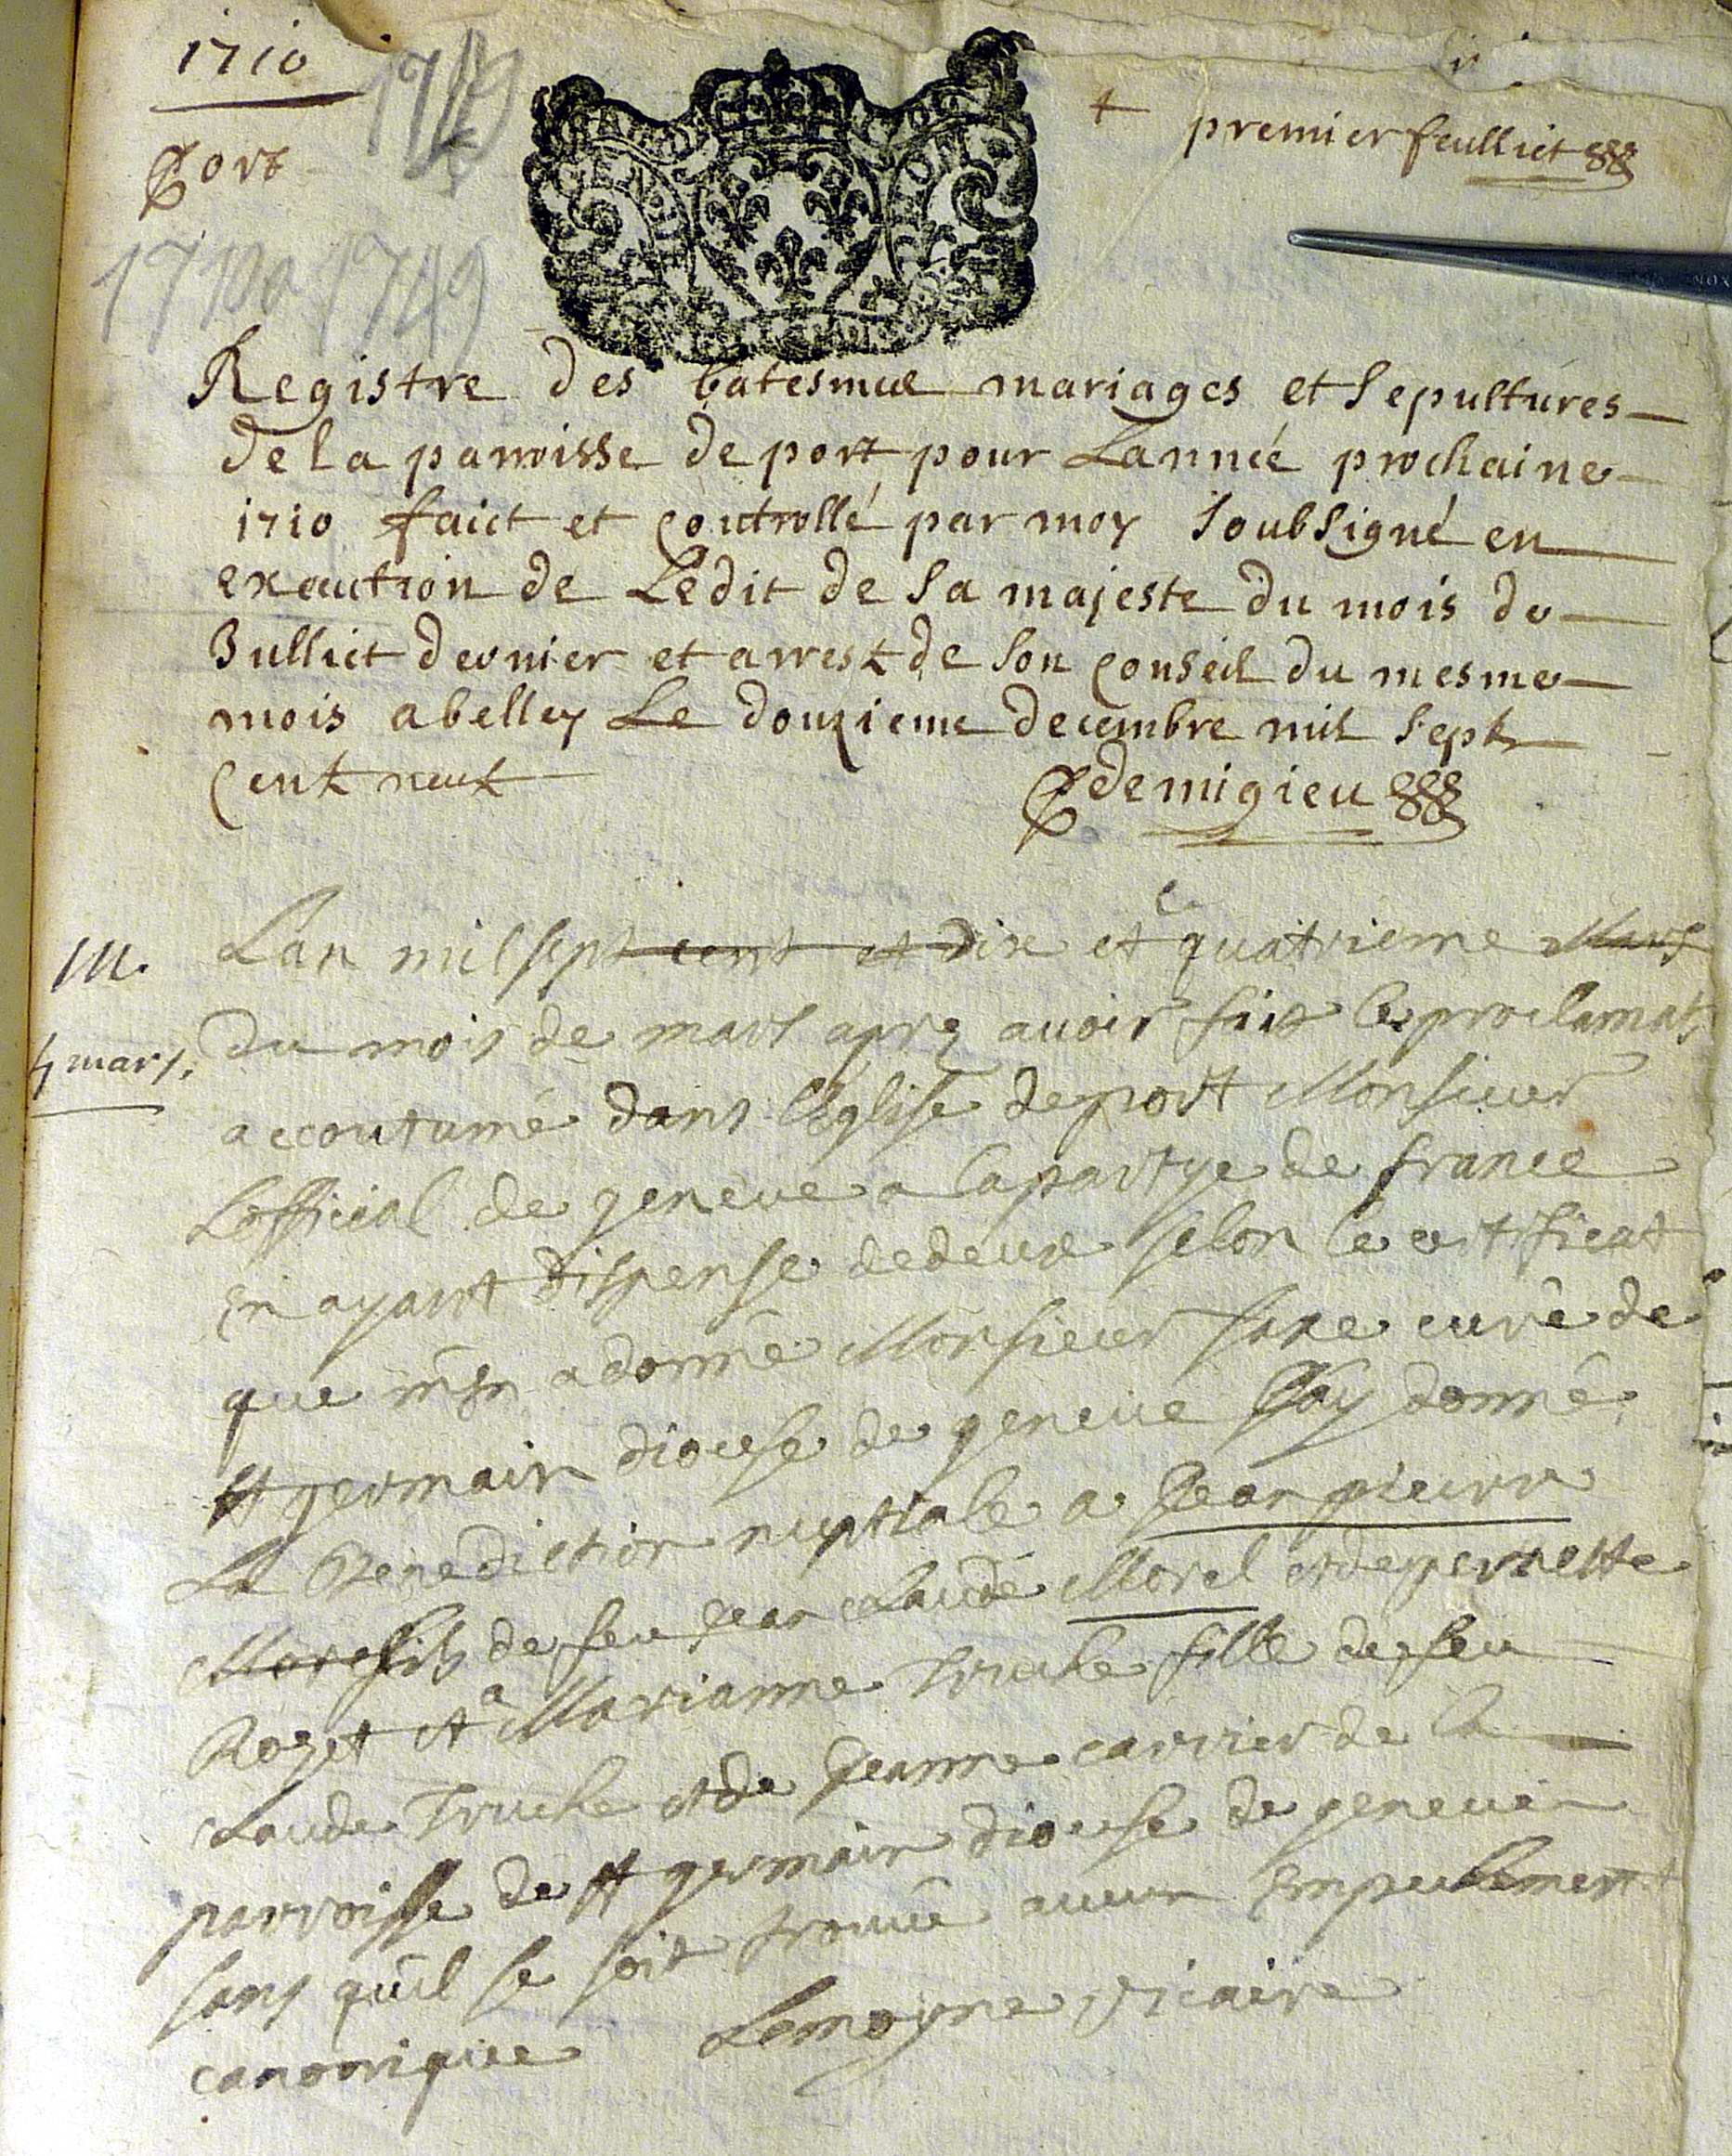 1710
1719
Port
1710 a 1719
premier feulliet
Registre des batesmue mariages et Sepultures
de la parroisse de port pour Lannée prochaine
1710 faict et controllé par moy Soubsigné en
execution de Ledit de Sa majeste du mois de
Julliet dernier et arrest de son conseil du mesme
mois a belley Le douzieme decembre mil Sept
cent neuf
demigieu
m.
4 mars.
Lan mil sept cent et dix et le quatrieme Mars
du mois de mars aprez avoir fait les proclamats
accoutumé dans l'Eglise de port Monsieur
Lofficial de geneve a la partye de france
En ayant dispense de deux selon le certificat
que m'En a donné Monsieur curé de
st germain diocese de geneve Jay donné
La Benediction nuptiale a Jean pierre
Morel fils de feu Jean claude Morel et de pernette
Rozet et a Marianne Truche fille de feu
claude Truche et de Jeanne carrier de la
parroisse de st germain diocese de geneve
sans qu'il se soit trouvé aucun Empechement
canonique Lemoyne vicaire